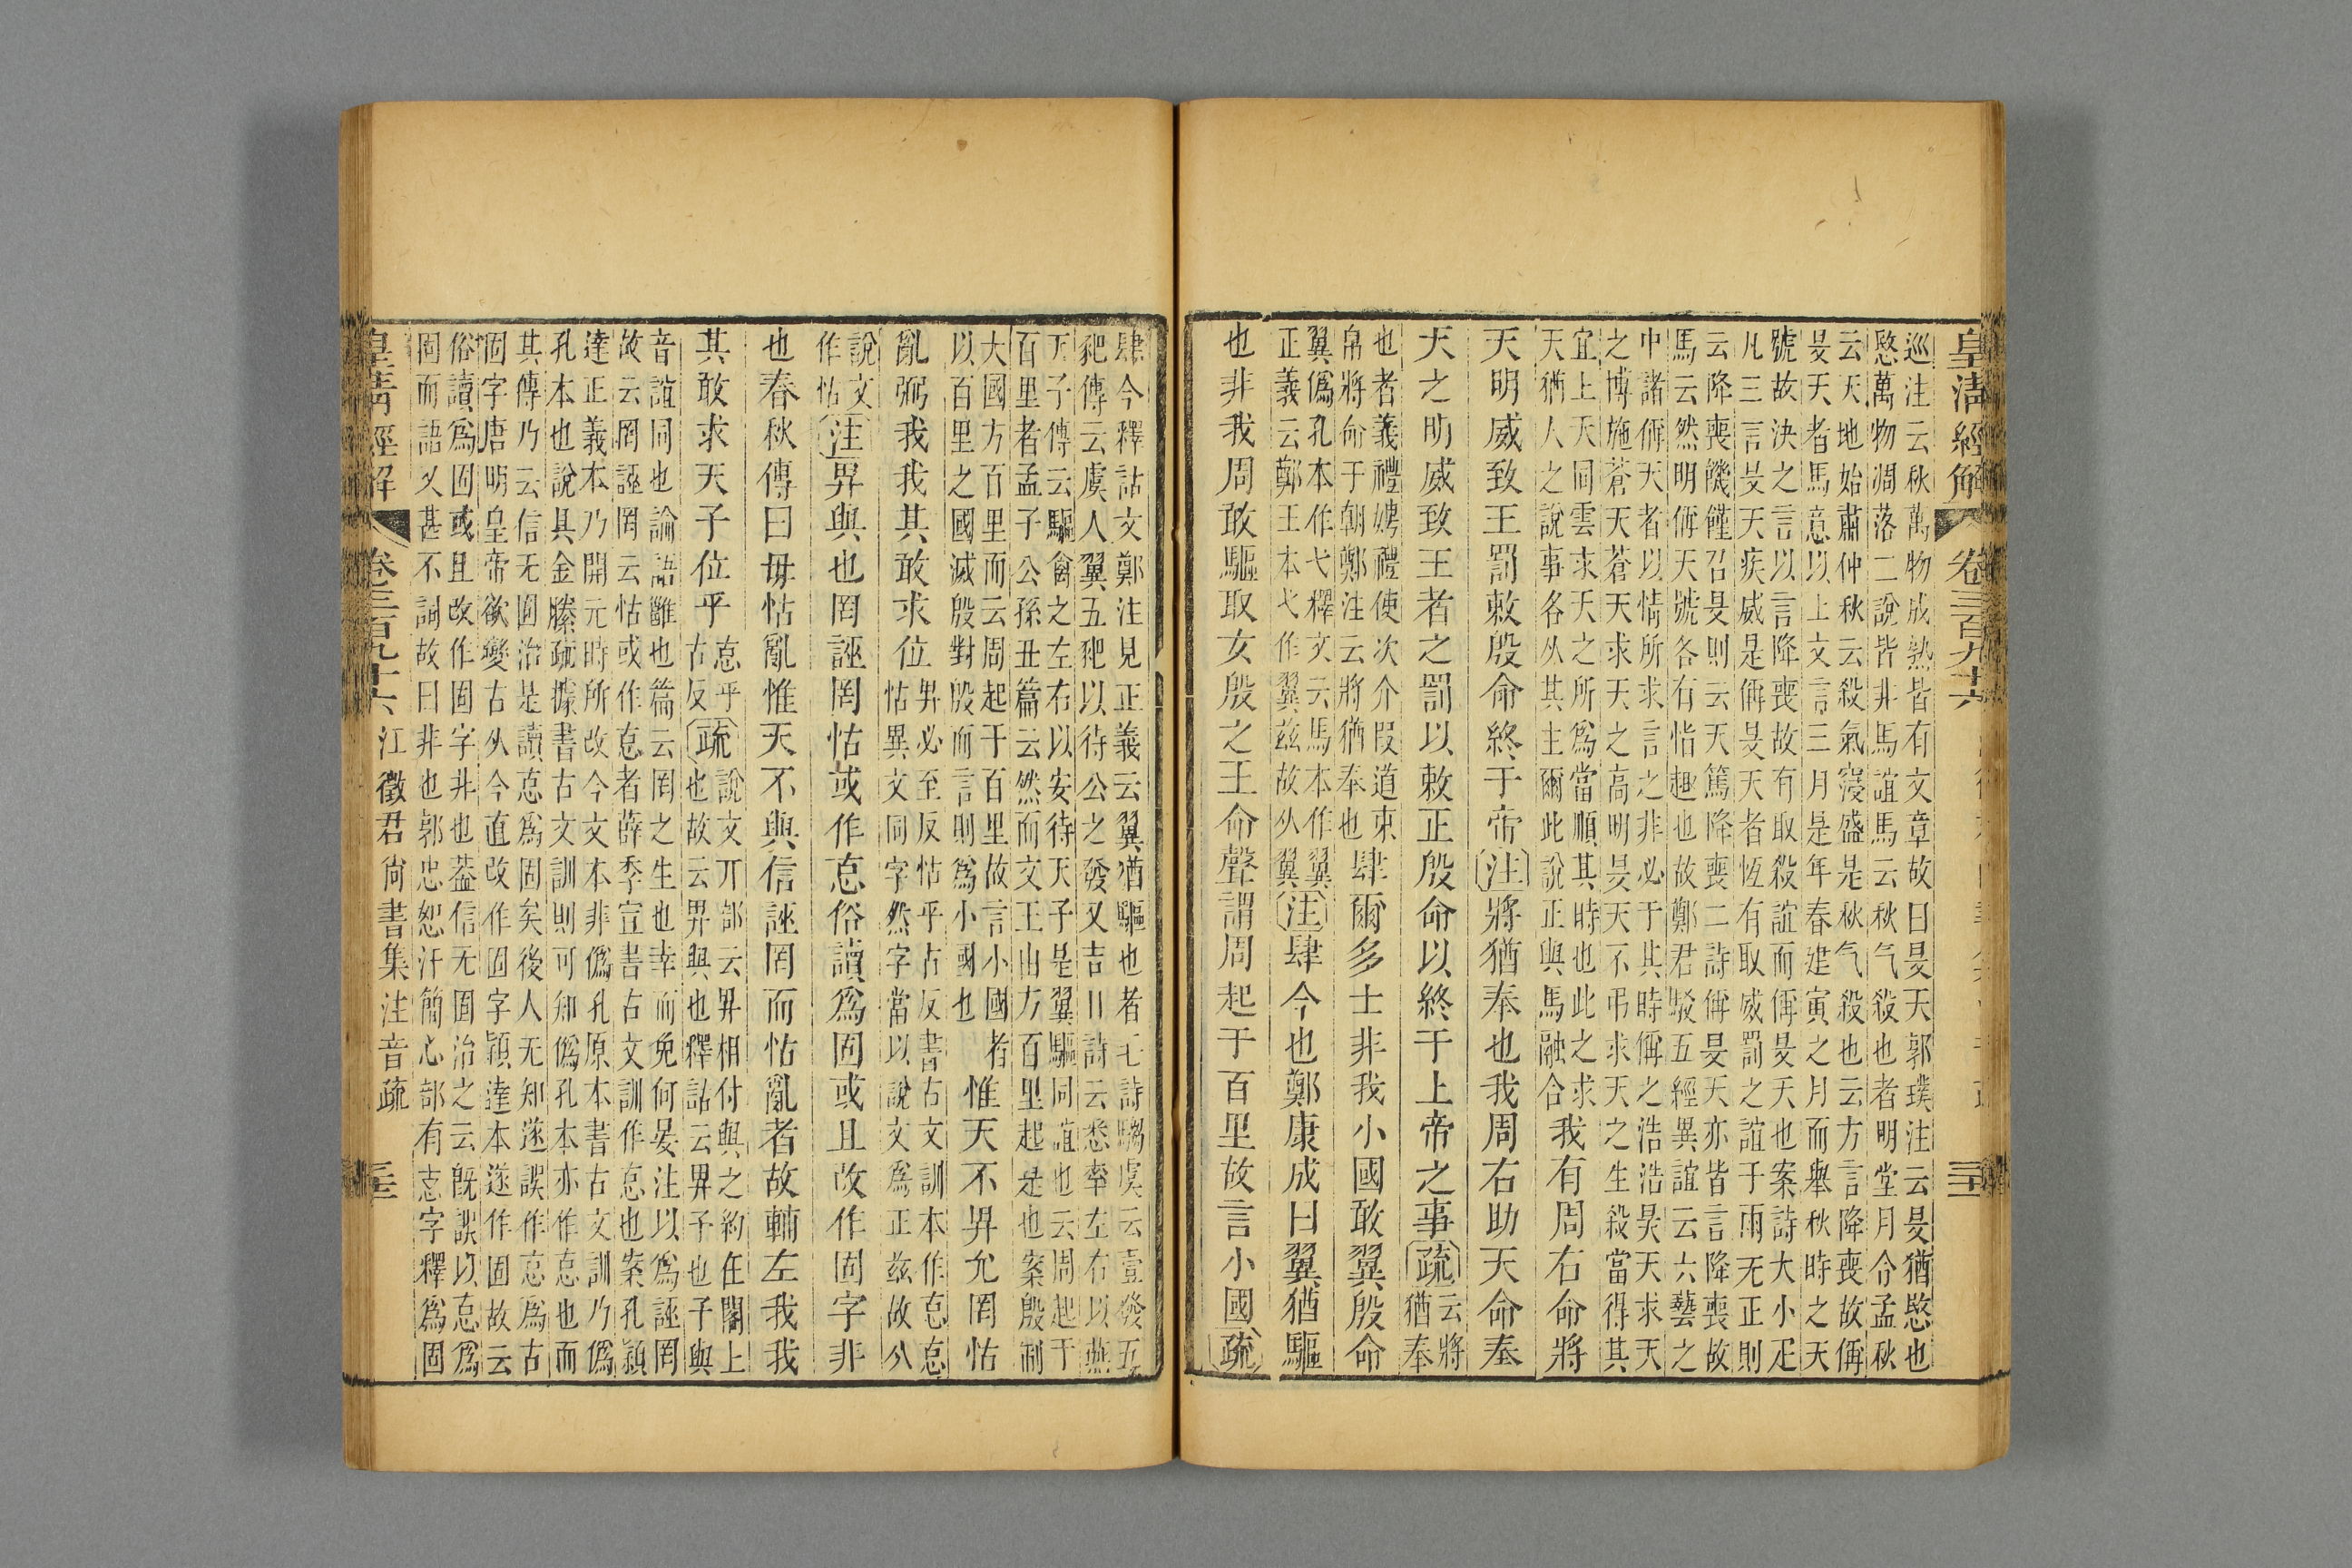 皇清經解 卷三百九十六
巡注云秋萬物成熟皆有文章故曰旻天郭璞注云旻猶愍也
愍萬物凋落二說皆非馬誼馬云秋气殺也者明堂月令孟秋
云天地始肅仲秋云殺氣寖盛是秋气殺也云方言降喪故偁
旻天者馬意以上文言三月是年春建寅之月而舉秋時之天
號故決之言以言降喪故有取殺誼而偁旻天也案詩大小疋
凡三言旻天疾威是偁旻天者恆有取威罰之誼于雨无正則
云降喪饑饉召旻則云天篤降喪二詩偁旻天亦皆言降喪故
馬云然明偁天號各有恉趣也故鄭君駁五經異誼云六藝之
中諸偁天者以情所求言之非必于其時偁之浩浩昊天求天
之博施蒼天蒼天求天之高明旻天不弔求天之生殺當得其
宜上天同雲求天之所爲當順其時也此之求
天猶人之說事各从其主爾此說正與馬融合
我有周右命將
天明威致王罰敕殷命終于帝注將猶奉也我周右助天命奉
天之明威致王者之罰以敕正殷命以終于上帝之事疏
云將
猶奉
也者義禮娉禮使次介叚道束
帛將命于朝鄭注云將猶奉也
肆爾多士非我小國敢翼殷命
翼僞孔本作弋釋文云馬本作翼
正義云鄭王本弋作翼兹故从翼
注肆今也鄭康成曰翼猶驅
也非我周敢驅取女殷之王命聲謂周起于百里故言小國疏
肆今釋詁文鄭注見正義云翼猶驅也者詩騶虞云壹發五
豝傳云虞人翼五豝以待公之發又吉日詩云悉率左右以燕
天子傳云驅禽之左右以安待天子是翼驅同誼也云周起于
百里者孟子公孫丑篇云然而文王由方百里起是也案殷制
大國方百里而云周起于百里故言小國者
以百里之國滅殷對殷而言則爲小國也
惟天不畀允罔怙
亂弼我我其敢求位
畀必至反怙乎古反書古文訓本作㤅㤅
怙異文同字然字當以說文爲正兹故从
說文
作怙
注畀與也罔誣罔怙或作㤅俗讀爲固或且改作固字非
也春秋傳曰毋怙亂惟天不與信誣罔而怙亂者故輔左我我
其敢求天子位乎
㤅乎
古反
疏
說文丌部云畀相付與之約在閣上
也故云畀與也釋詁云畀予也予與
音誼同也論語雝也篇云罔之生也幸而免何晏注以爲誣罔
故云罔誣罔云怙或作㤅者薛季宣書古文訓作㤅也案孔穎
達正義本乃開元時所改今文本非僞孔原本書古文訓乃僞
孔本也說具金縢疏據書古文訓則可知僞孔本亦作㤅也而
其傳乃云信无固治是讀㤅爲固矣後人无知遂誤作㤅爲古
固字唐明皇帝欲變古从今直改作固字穎達本遂作固故云
俗讀爲固或且改作固字非也葢信无固治之云旣誤以㤅爲
固而語又甚不詞故曰非也郭忠恕汗簡心部有㤅字釋爲固
皇清經解 卷三百九十六 江徵君尙書集注音疏